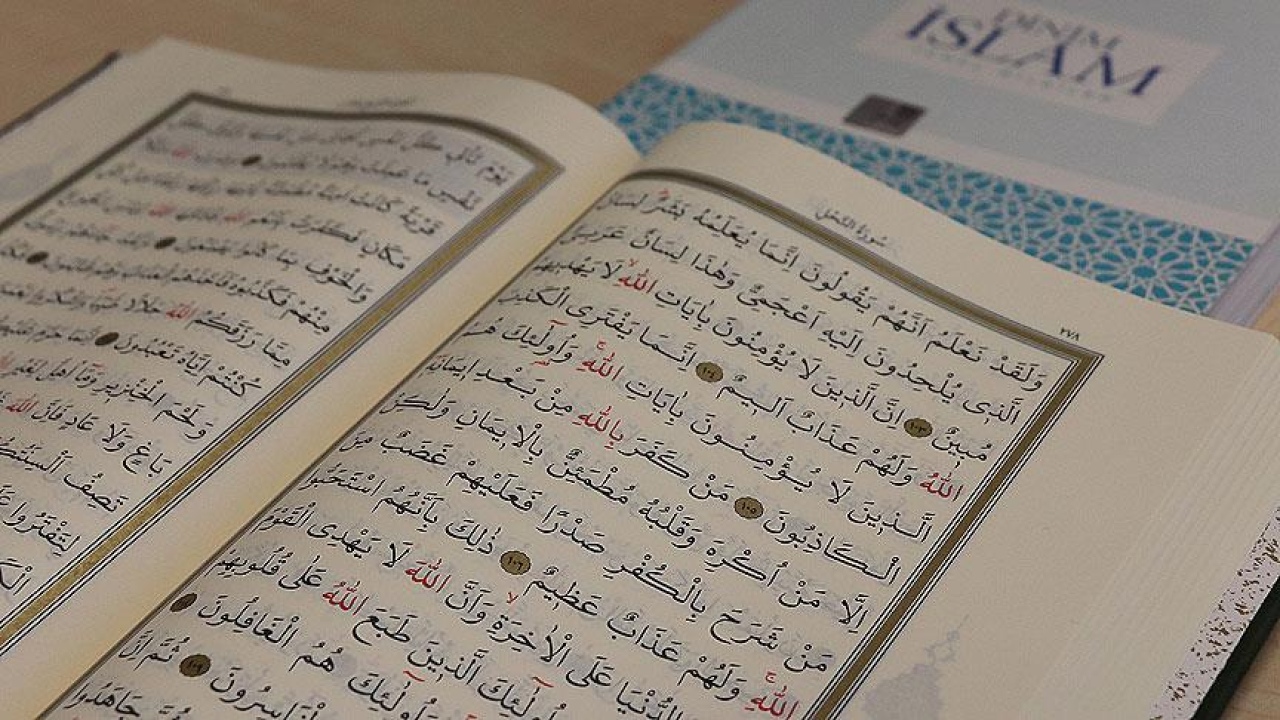 DİNİM
İSLAM
سُورَةُ النَّحْلِ
٢٧٨
وَلَقَدْ نَعْلَمُ اَنَّهُمْ يَقُولُونَ اِنَّمَا يُعَلِّمُهُ بَشَرٌ لِسَانُ
الَّذِى يُلْحِدُونَ اِلَيْهِ اَعْجَمِىٌّ وَهٰذَا لِسَانٌ عَرَبِىٌّ
مُبِينٌ ١٠٣ اِنَّ الَّذِينَ لَا يُؤْمِنُونَ بِاٰيَاتِ اللّٰهِ لَا يَهْدِيهِمُ
اللّٰهُ وَلَهُمْ عَذَابٌ اَلِيمٌ ١٠٤ اِنَّمَا يَفْتَرِى الْكَذِبَ
الَّذِينَ لَا يُؤْمِنُونَ بِاٰيَاتِ اللّٰهِ وَاُولٰٓئِكَ هُمُ
الْكَاذِبُونَ ١٠٥ مَنْ كَفَرَ بِاللّٰهِ مِنْ بَعْدِ اِيمَانِهِ
اِلَّا مَنْ اُكْرِهَ وَقَلْبُهُ مُطْمَئِنٌّ بِالْاِيمَانِ وَلٰكِنْ
مَنْ شَرَحَ بِالْكُفْرِ صَدْرًا فَعَلَيْهِمْ غَضَبٌ مِنَ
اللّٰهِ وَلَهُمْ عَذَابٌ عَظِيمٌ ١٠٦ ذٰلِكَ بِاَنَّهُمُ اسْتَحَبُّوا
الدُّنْيَا عَلَى الْاٰخِرَةِ وَاَنَّ اللّٰهَ لَا يَهْدِى الْقَوْمَ
اُولٰٓئِكَ الَّذِينَ طَبَعَ اللّٰهُ عَلٰى قُلُوبِهِمْ
وَاُولٰٓئِكَ هُمُ الْغَافِلُونَ
الْخَاسِرُونَ ١٠٩ ثُمَّ اِنَّ
ثُمَّ جَاهَدُوا
يَوْمَ تَأْتِى كُلُّ نَفْسٍ
نَفْسٍ مَا عَمِلَتْ وَهُمْ لَا يُظْلَمُونَ
قَرْيَةً كَانَتْ اٰمِنَةً مُطْمَئِنَّةً
مَكَانٍ فَكَفَرَتْ بِاَنْعُمِ اللّٰهِ
وَالْخَوْفِ بِمَا كَانُوا يَصْنَعُونَ
مِنْهُمْ فَكَذَّبُوهُ فَاَخَذَهُمُ الْعَذَابُ وَهُمْ ظَالِمُونَ
مِمَّا رَزَقَكُمُ اللّٰهُ حَلَالًا طَيِّبًا وَاشْكُرُوا
كُنْتُمْ اِيَّاهُ تَعْبُدُونَ اِنَّمَا حَرَّمَ عَلَيْكُمُ
وَلَحْمَ الْخِنْزِيرِ وَمَا اُهِلَّ لِغَيْرِ
بَاغٍ وَلَا عَادٍ فَاِنَّ اللّٰهَ
تَصِفُ اَلْسِنَتُكُمُ
لِتَفْتَرُوا